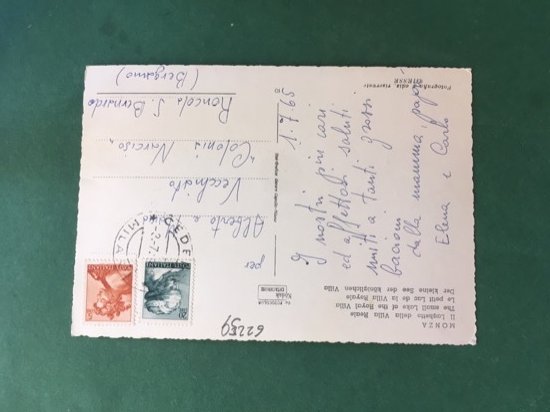 MONZA
Il Laghetto della Villa Reale
The small Lake of the Royal Villa
Le petit Lac de la Villa Royale
Der kleine See der königlichen Villa
1.7.65
I nostri più cari
ed affettuosi saluti
uniti a tanti grossi
bacioni
dalla mamma, papà
Elena e Carlo
per
Alberto e
Vecchiato
"Colonia Narciso"
Roncola S. Bernardo
(Bergamo)
POSTE ITALIANE
POSTE ITALIANE
Kodak
EKTACHROME
62259